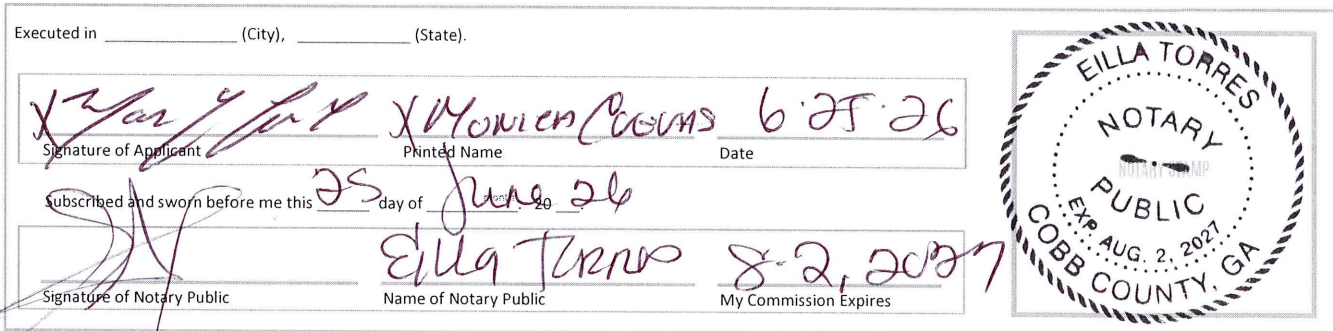 Executed in ____________ (City), ____________ (State).
X X MONICA CUEVAS 6·25·26
Signature of Applicant Printed Name Date
Subscribed and sworn before me this 25 day of June 20 26
Eilla Torres 8-2, 2027
Signature of Notary Public Name of Notary Public My Commission Expires
EILLA TORRES
NOTARY
NOTARY STAMP
PUBLIC
EXP. AUG. 2, 2027
COBB COUNTY, GA